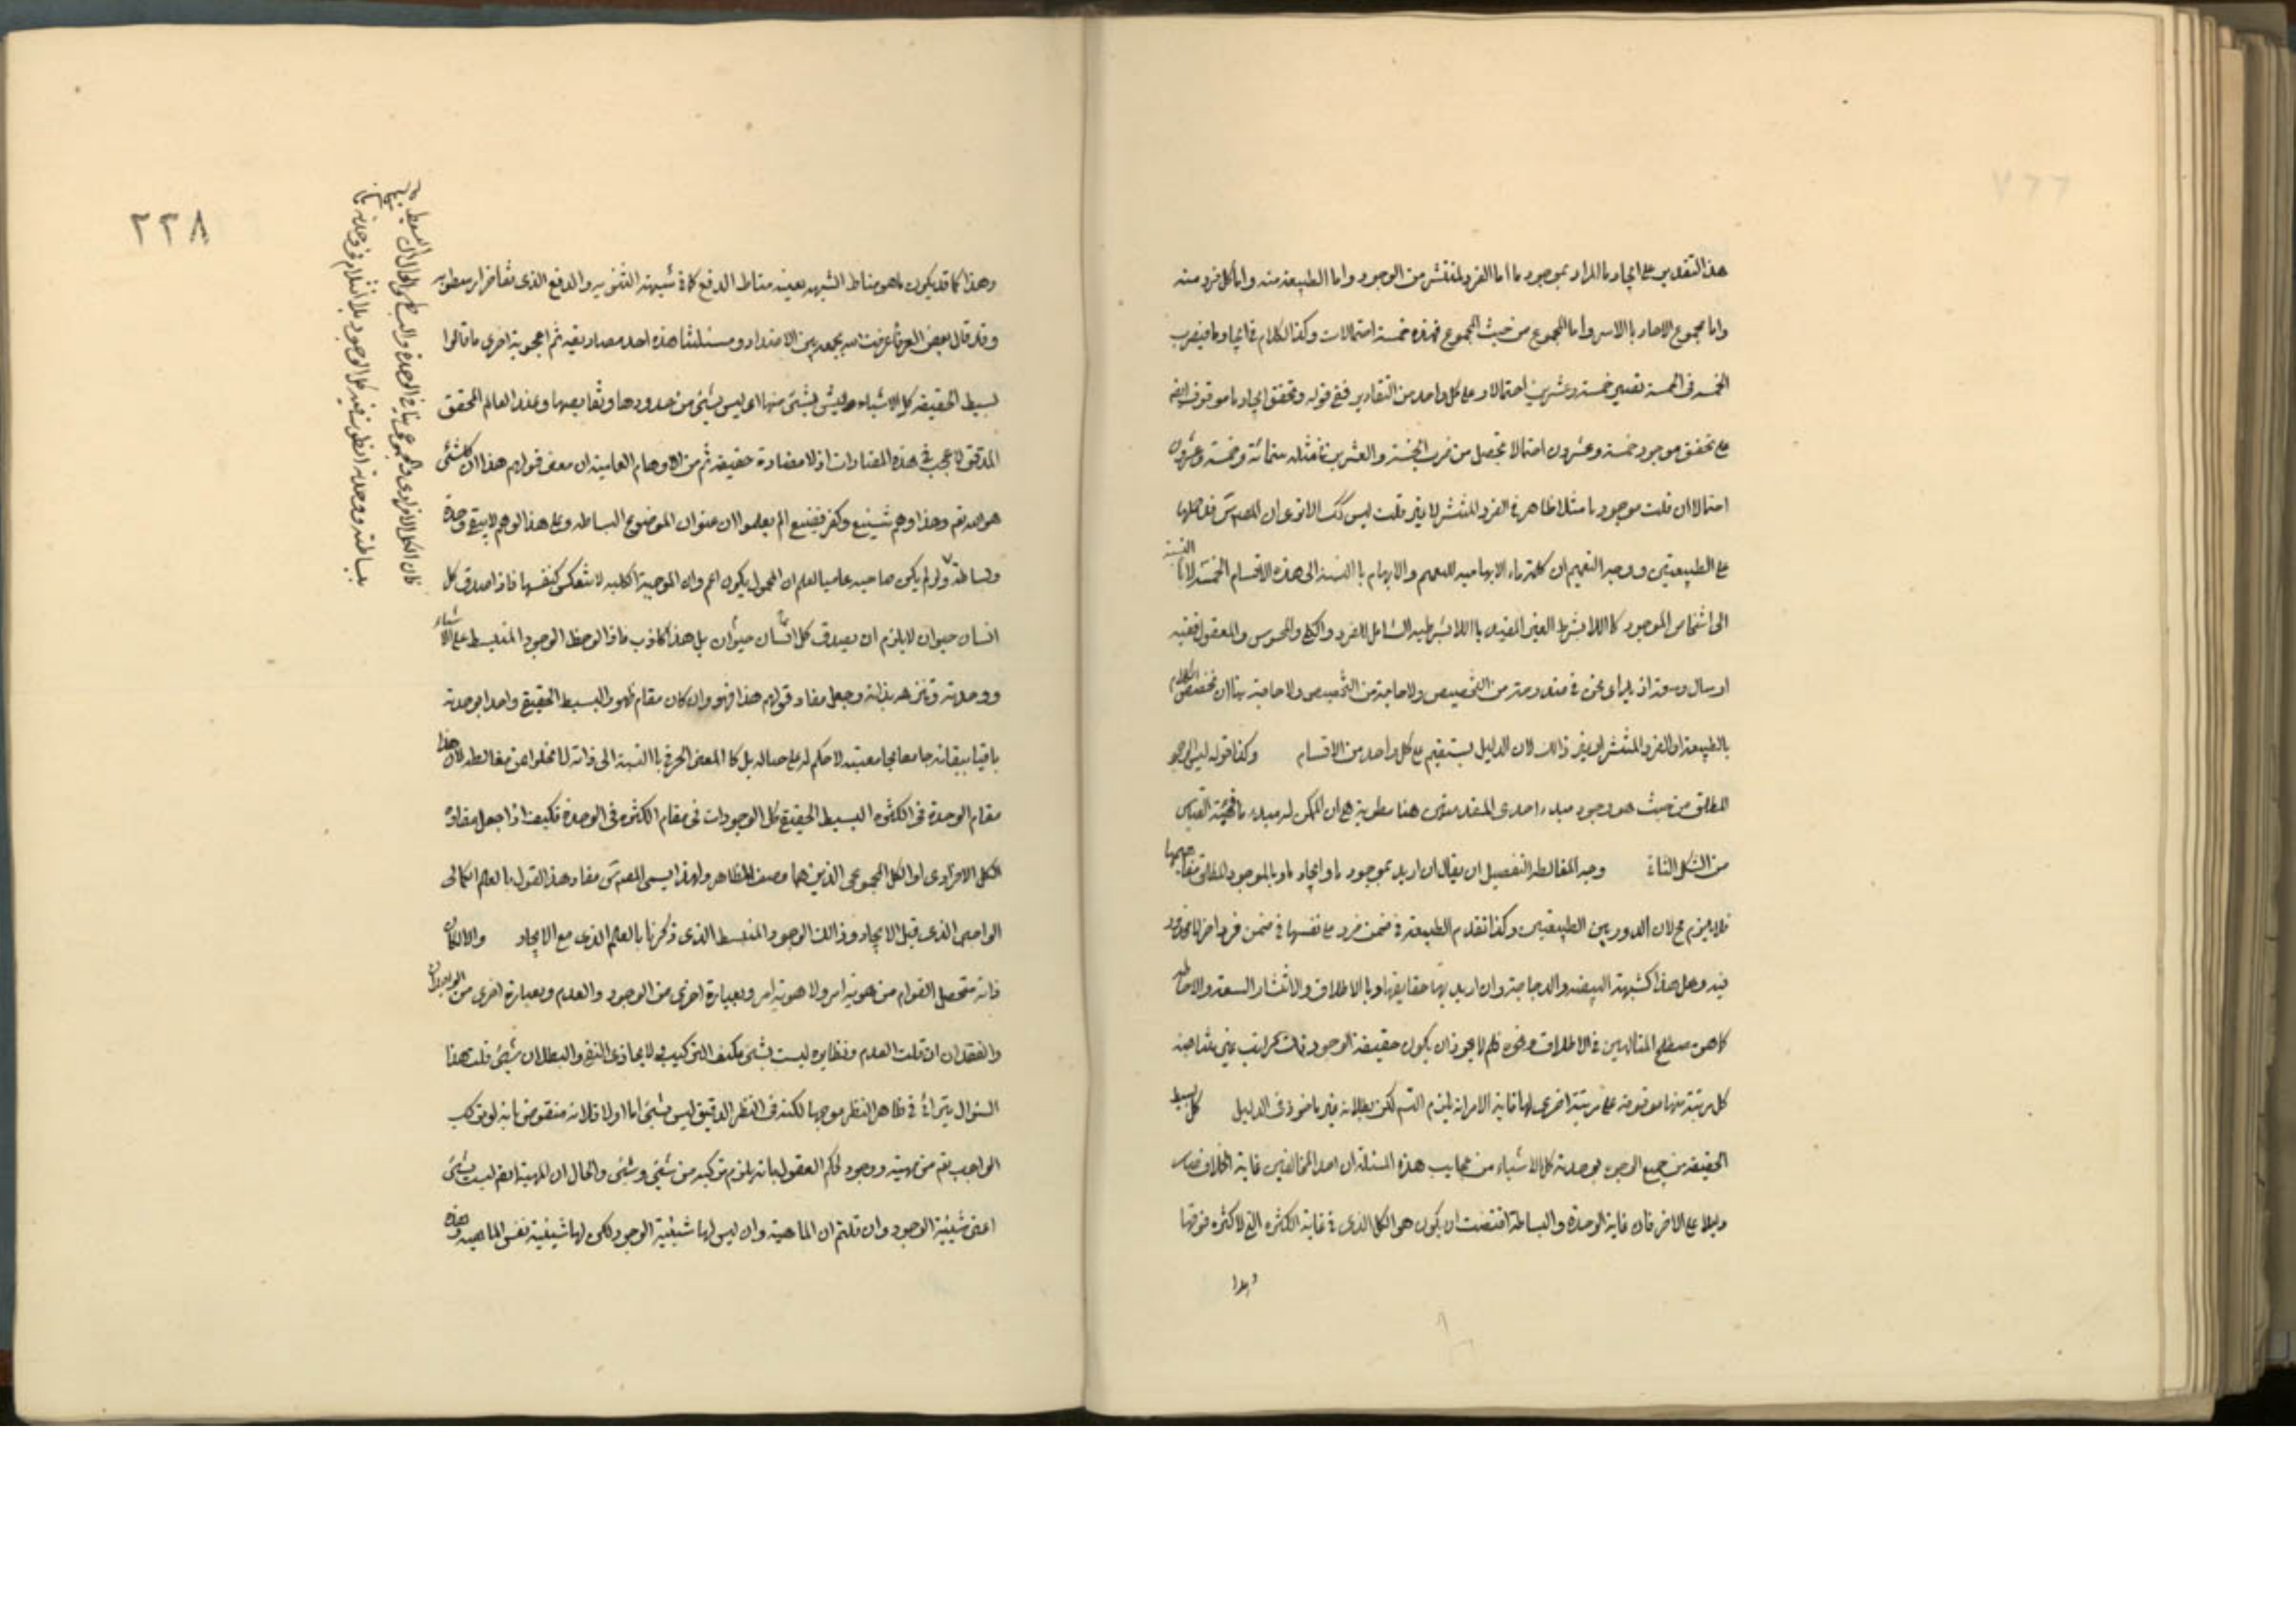 هذا التقدير على ايجاد ما المراد بموجود ما اما الفرد المنتشر من الوجود واما الطبيعة منه واما كل فرد منه
واما مجموع الاحاد بالاسر واما المجموع من حيث المجموع فهذه خمسة احتمالات وكذا الكلام فى ايجاد ما فيضرب
الخمسه فى الخمسة تصير خمسة وعشرين احتمالا وعلى كل واحد من التقادير ففى قوله وتحقق ايجاد ما موقوف ايضا
على تحقق موجود خمسة وعشرون احتمالا تحصل من ضرب الخمسة والعشرين فى مثله ستمائة وخمسة وعشرون
احتمالا ان قلت موجود ما مثلا ظاهر فى الفرد المنتشر لا غير قلت ليس كك الا ترى ان المص س حملها
على الطبيعتين ووجه التعميم ان كلمة ما الابهاميه للتعميم والابهام بالنسبة الى هذه الاقسام الخمسة لا بالنسبة
الى اشخاص الموجود كاللا بشرط الغير المقيد باللا بشرطيه الشامل للفرد والكلى والمحسوس والمعقول ففيه
ارسال وسعة اذ يراعى نحن فى مندوحة من التخصيص ولا حاجة بنا ان نخصص الكلام
بالطبيعة او الفرد المنتشر او غير ذالك لان الدليل يستقيم على كل واحد من الاقسام وكذا قوله ليس للموجود
المطلق من حيث هو موجود مبدء احدى المقدمتين هنا مطوية هى ان الممكن له مبدء ما فهيئة القياس
من الشكل الثانى وجه المغالطه التفصيل ان يقال ان اريد بموجود ما وايجاد ما وبالموجود المطلق مفاهيمها
فلا يلزم مح لان الدور بين الطبيعتين وكذا تقدم الطبيعة فى ضمن فرد على نفسها فى ضمن فرد اخر لا محذور
فيه وهل هذا الا كشبهة البيضه والدجاجة وان اريد بها حقايقها وبالاطلاق والانتشار السعة والاحاطه
كما هو مصطلح المتالهين فى الاطلاق ونحوه فلم لا يجوز ان يكون حقيقة الوجود ذات مراتب غير متناهيه
كل مرتبة منها موقوفة على مرتبة اخرى لها غاية الامر انه يلزم التس لكن بطلانه غير ماخوذ فى الدليل كل بسيط
الحقيقة من جميع الوجوه بوحدته كل الاشياء من عجايب هذه المسئلة ان احد المخالفين غاية الخلاف صار
دليلا على الاخر فان غاية الوحدة والبساطة اقتضت ان يكون هو الكل الذى فى غاية الكثره التى لا كثره فوقها
وهذا
٢٣٨
وهذا كما قد يكون ما هو مناط الشبهه بعينه مناط الدفع كما فى شبهة الثنويه والدفع الذى تفاخر ارسطو به
وقد قال بعض العرفا عرفت الله بجمعه بين الاضداد ومسئلتنا هذه احد مصاديقه ثم اعجوبة اخرى ما قالوا
بسيط الحقيقة كل الاشياء وليس بشئ منها اى ليس بشئ من حدودها ونقايصها وعند العالم المحقق
المدقق لا عجب فى هذه المضادات اذ لا مضادة حقيقة ثم من الاوهام العاميه ان معنى قولهم هذا ان كلشئ
هو الله تعم وهذا وهم شنيع وكفر فضيع الم يعلموا ان عنوان الموضوع البساطه وعلى هذا الوهم لا يبقى وحدة
وبساطة ولو لم يكن صاحبه عاميا لعلم ان المحمول يكون اعم وان الموجبة الكليه لا تنعكس كنفسها فاذا صدق كل
انسان حيوان لا يلزم ان يصدق كل حيوان انسان بل هذا كاذب فاذا لوحظ الوجود المنبسط على الاشياء
ووحدته وتنزهه بذاته وجعل مفاد قولهم هذا فهو وان كان مقام ظهور البسيط الحقيقى واحدا بوحدته
باقيا ببقائه جامعا بجامعيته لا حكم له على حياله بل كالمعنى الحرفى بالنسبة الى ذاته لا يخلوا عن مغالطه لان هذا
مقام الوحدة فى الكثره البسيط الحقيقى كل الوجودات فى مقام الكثره فى الوحدة فكيف اذا جعل مفاده
الكل الافرادى او الكل المجموعى الذين هما وصف المظاهر ولهذا يسمى المص س مفاد هذا القول بالعلم الكمالى
الواجبى الذى قبل الايجاد وذالك الوجود المنبسط الذى ذكرنا بالعلم الذى مع الايجاد والا لكان
ذاته متحصل القوام من هوية امر ولا هوية امر وبعبارة اخرى من الوجود والعدم وبعبارة اخرى من الوجدان
والفقدان ان قلت العدم ونظايره ليست بشئ فكيف التركيب لا يحاذى النفى والبطلان شئ قلت هذا
السئوال يتراءى فى ظاهر النظر موجها لكنه فى النظر الدقيق ليس بشئ اما اولا فلانه منقوض بانه لو تركب
الواجب تعم من مهية ووجود لحكم العقول بانه يلزم تركبه من شئ وشئ والحال ان المهية ايضا ليست بشئ
اعنى شيئية الوجود وان قلتم ان الماهية وان ليس لها شيئية الوجود لكن لها شيئية نفس الماهيه وهذه
فان الكل الافرادى والمجموعى ينافى الوحدة والبساطة والحال ان البسيط
بساطته ووحدته انطوت فيه كل الوجود بلا انثلام فى وحدته